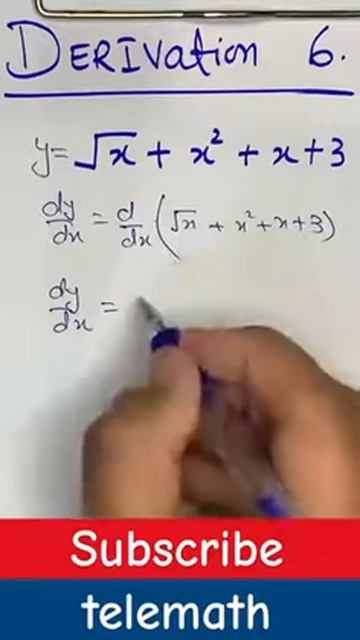 DERIVATION 6.
y = √x + x² + x + 3
dy/dx = d/dx (√x + x² + x + 3)
dy/dx =
Subscribe
telemath